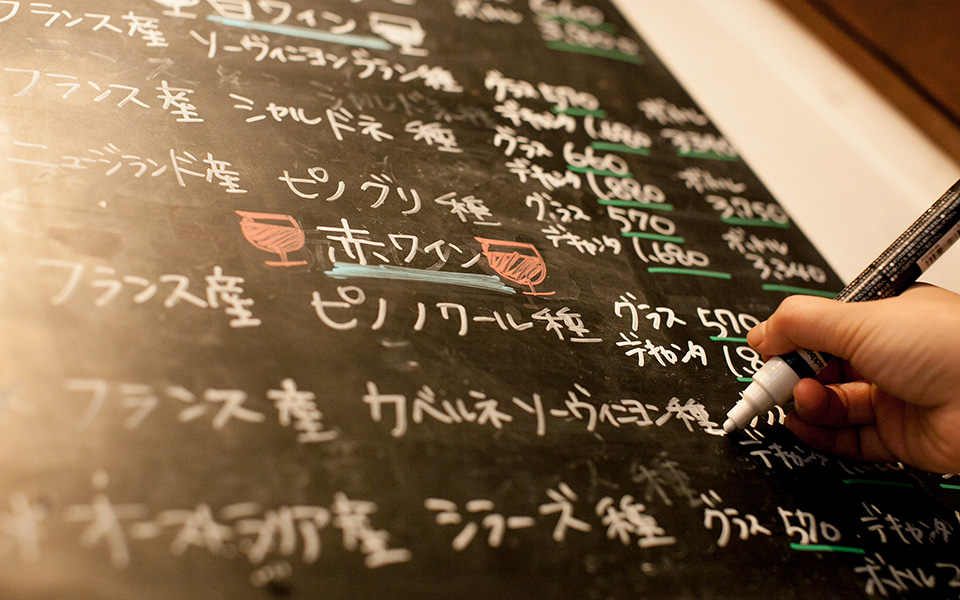 白ワイン
フランス産 ソーヴィニヨンブラン種 グラス 570 ボトル
デキャンタ 1,680
フランス産 シャルドネ種 グラス 660 ボトル
デキャンタ 1,880 3,750
ニュージランド産 ピノグリ種 グラス 570 ボトル
デキャンタ 1,680 3,340
赤ワイン
フランス産 ピノノワール種 グラス 570
デキャンタ
フランス産 カベルネソーヴィニヨン種
デキャンタ
オーストラリア産 シラーズ種 グラス 570 デキャンタ
ボトル